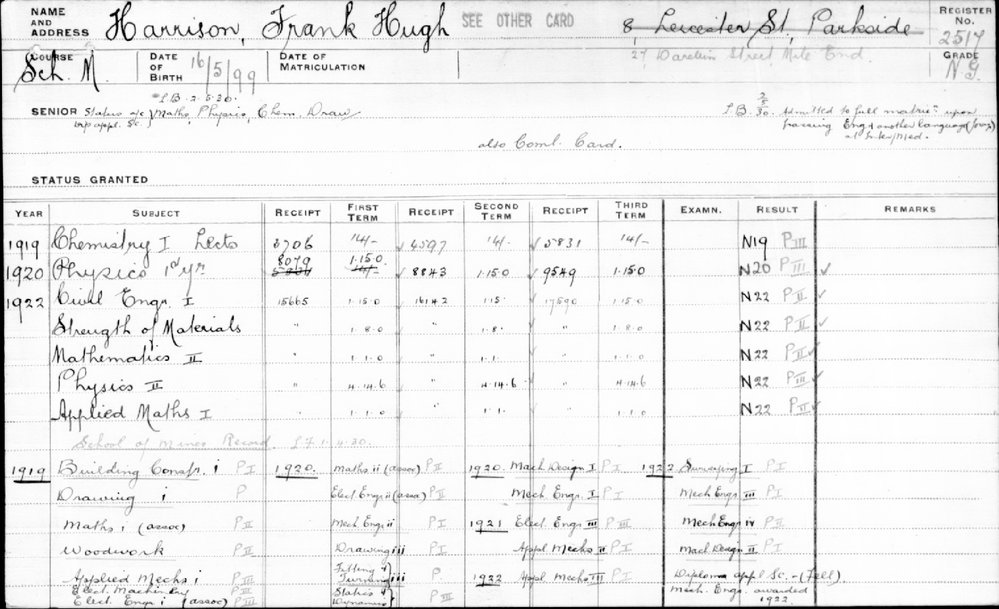 NAME AND ADDRESS Harrison, Frank Hugh SEE OTHER CARD 8, Leicester St, Parkside REGISTER No. 2517
27 Street Mile End.
COURSE Sch. M. DATE OF BIRTH 16/5/99 DATE OF MATRICULATION GRADE N.G.
L.B. 2.5.30.
SENIOR Status a/c Maths, Physics, Chem, Draw L.B. 2/5/30. Admitted to full matric upon
appl. Sc. passing Eng & another language
also Coml. Card. at Inter/Med.
STATUS GRANTED
YEAR SUBJECT RECEIPT FIRST TERM RECEIPT SECOND TERM RECEIPT THIRD TERM EXAMN. RESULT REMARKS
1919 Chemistry I Lects 3706 14/- 4597 14/- 5831 14/- N19 P III
1920 Physics 1st yr 8079 1.15.0 8843 1.15.0 9549 1.15.0 N20 P III ✓
1922 Civil Engr. I 15665 1.15.0 16142 1.15. 17590 1.15.0 N22 P II ✓
Strength of Materials " 1.8.0 " 1.8. " 1.8.0 N22 P II ✓
Mathematics II " 1.1.0 " 1.1. " 1.1.0 N22 P II ✓
Physics II " 4.14.6 " 4.14.6 " 4.14.6 N22 P III ✓
Applied Maths I " 1.1.0 " 1.1. " 1.1.0 N22 P II ✓
School of Mines Record L.F. 1.4.30.
1919 Building Constr. i P I 1920. Maths ii (assoc) P II 1920. Mach Design I P I 1922 Surveying I P I
Drawing i P Elect Engr ii (assoc) P II Mech Engr. I P I Mech Engr III P II
Maths i (assoc) P II Mech Engr ii P I 1921 Elect Engr III P III Mech Engr iv P II
Woodwork P II Drawing iii P I Appl Mechs II P I Mach Design II P I
Applied Mechs i P III Fitting & Turning iii P 1922 Appl Mechs III P I Diploma appl Sc. - (Fell).
Elect. Machinery P II Statics & Dynamics P III Mech. Engr. awarded
Elect. Engr i (assoc) P III 1922.